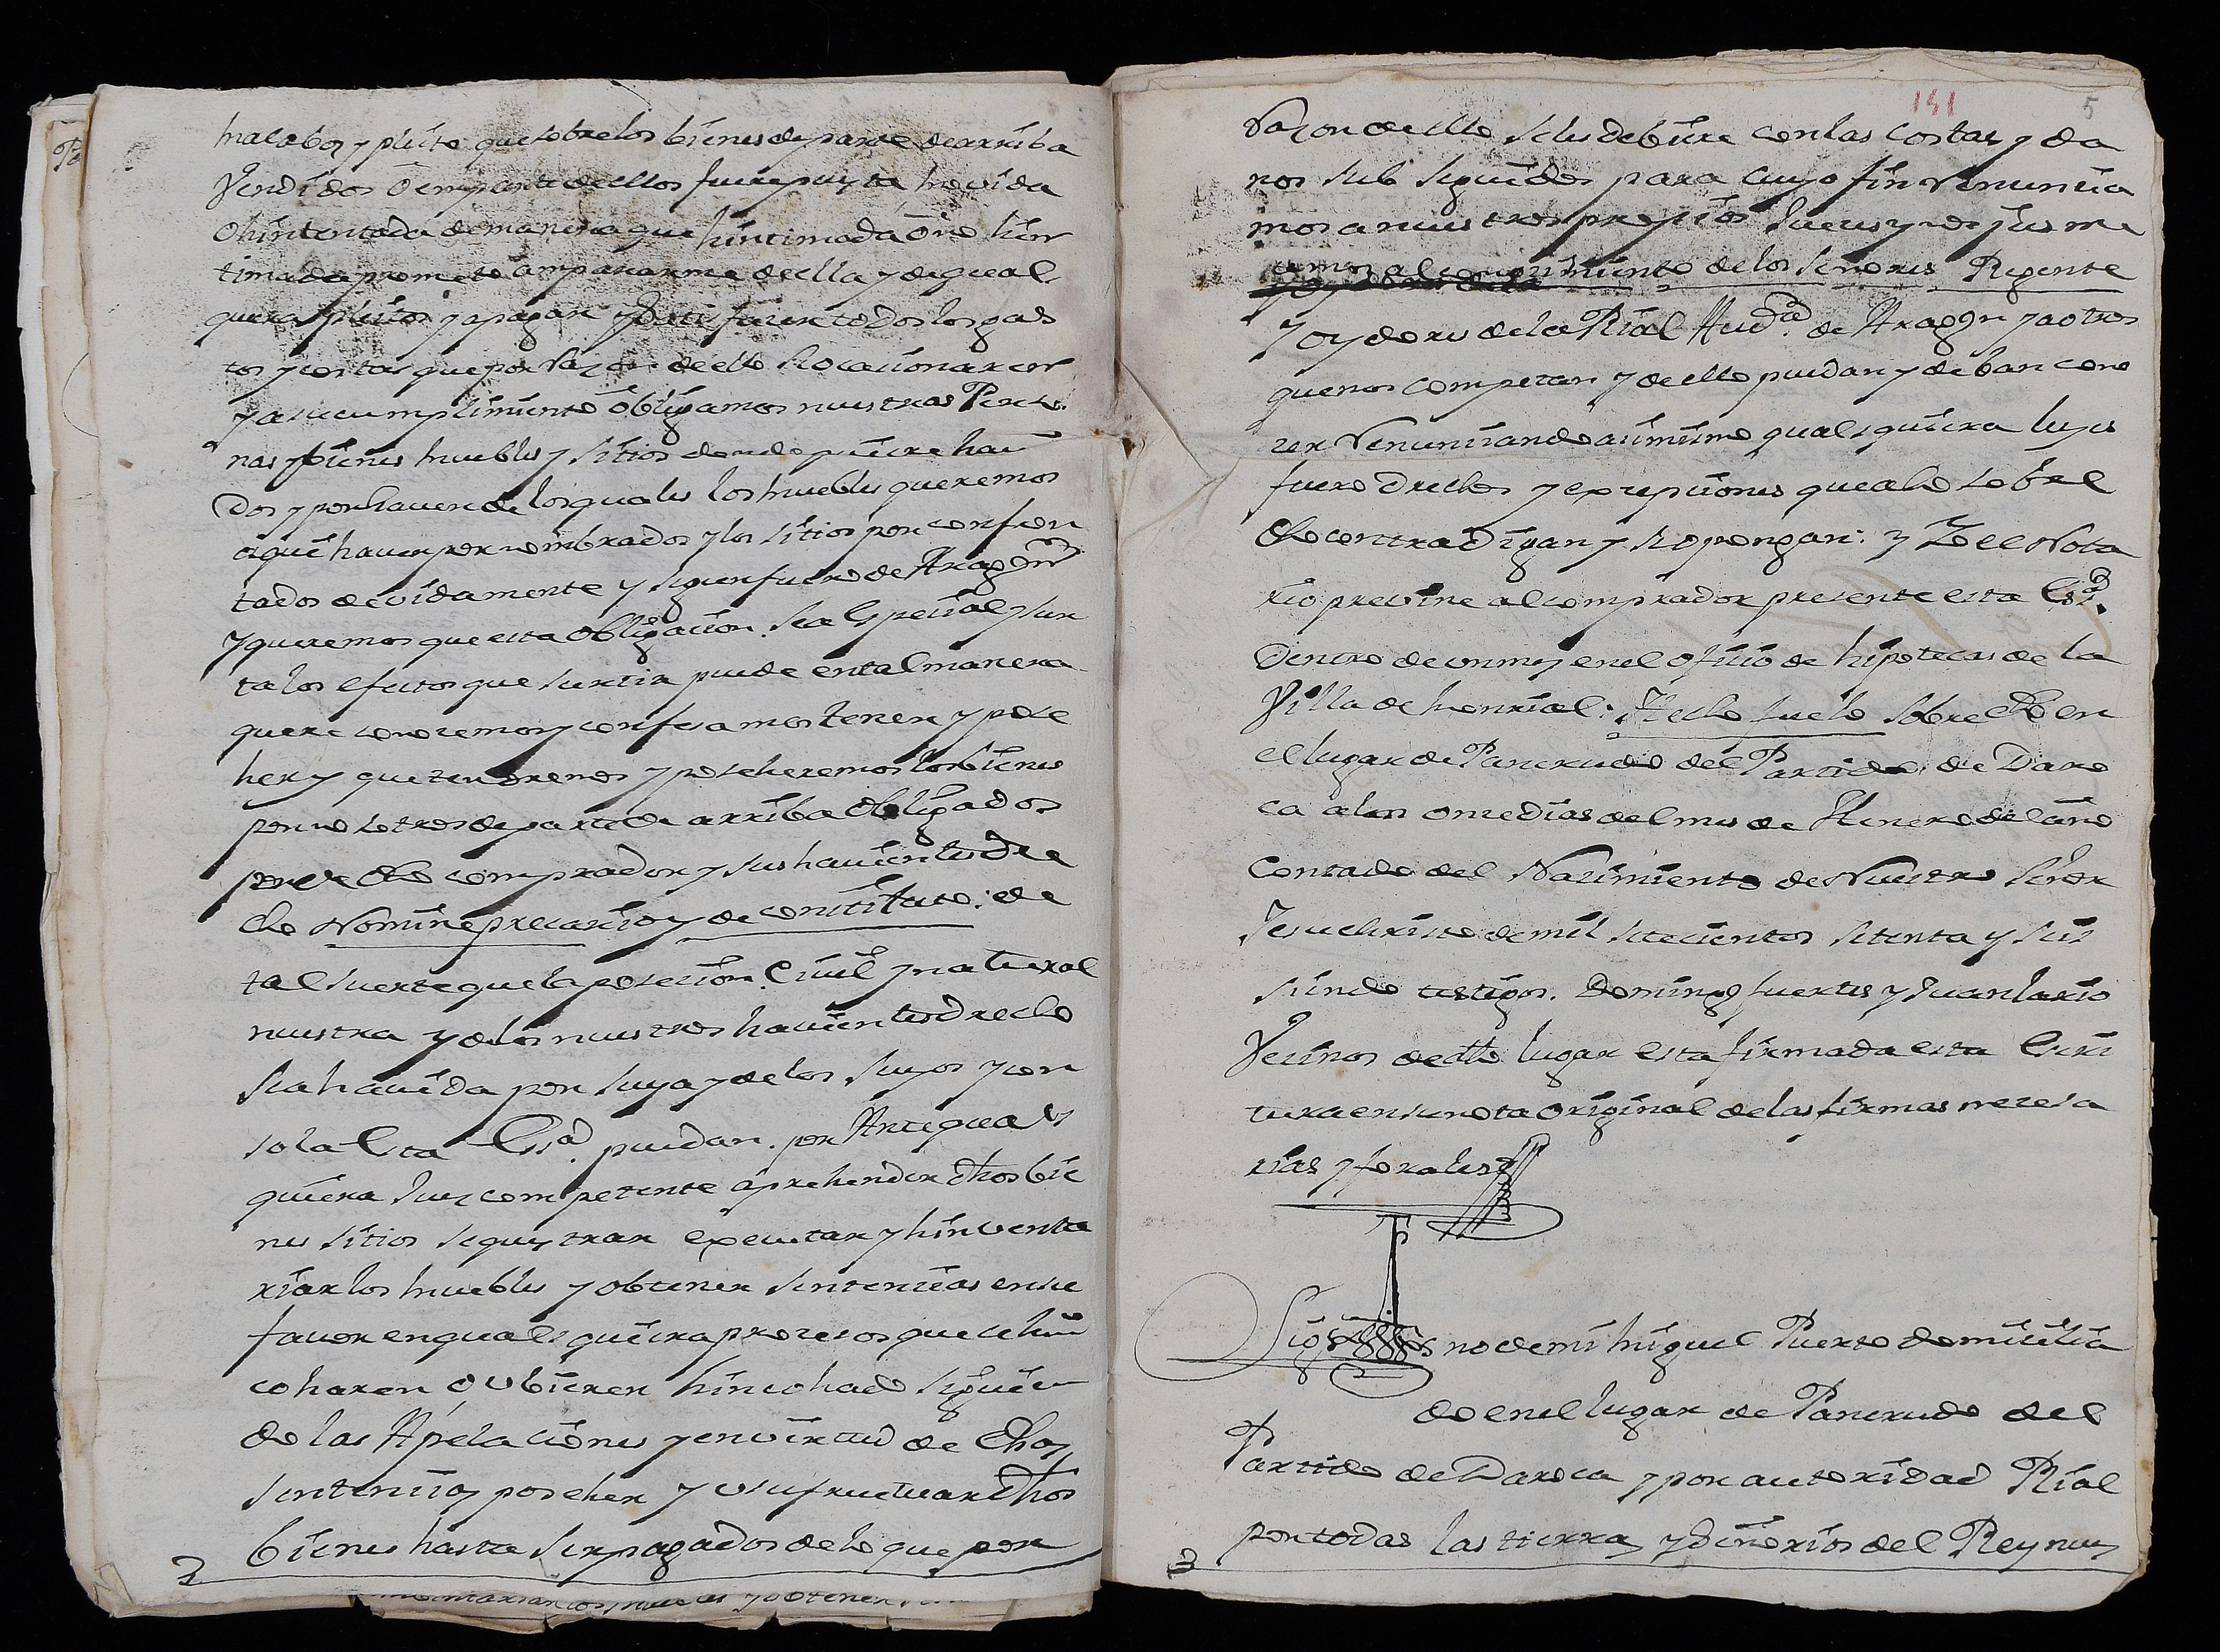 malaboz y pleito que sobre los bienes de parte de arriba
Vendidos o en parte de ellos fuere puesta movida
o hintentada de manera que hintimada o no hin
timada prometo ampararme de ella y de qual
quiera pleitos y a pagar y satisfacer todos los gas
tos y costas que por razon de ello se ocasionaren
y a su cumplimiento obligamos nuestras Perso
nas y bienes muebles y sitios donde quiere havi
dos y por haver de los quales los muebles queremos
aqui haver por nombrados y los sitios por confron
tados devidamente y segun fuero de Aragon
y queremos que esta obligacion sea especial y sur
ta los efectos que surtir puede en tal manera
que reconocemos y confesamos tener y pose
her y que tendremos y poseheremos los bienes
por nosotros de parte de arriba obligados
por el dho comprador y sus havientes dre
cho Nomine precario y de constituto: de
tal suerte que la posesion Civil y natural
nuestra y de los nuestros havientes drecho
sea havida por suya y de los suyos y con
sola Esta Essra. puedan por Ante quals
quiera Juez competente aprehender dhos bie
nes sitios sequestrar executar y hinventa
riar los muebles y obtener sentencias en su
favor en quales quiera procesos que se hin
coharen o vbieren hincohado siguien
do las Apelaciones y en virtud de dhas
sentencias poseher y usufructuar dhos
bienes hasta ser pagados de lo que por
151 5
Razon de ello se les debiere con las costas y da
nos sub seguidos para cuyo fin renuncia
mos a nuestros propios Jueces y nos jusme
temos al conocimiento de los Señores Regente
y oydores de la Rial Auda. de Aragon y a otros
que nos competan y de ello puedan y deban cono
zer Renunciando asimismo qualesquiera leyes
fuero drechos y excepciones que a lo sobre
dho contradigan y se opongan: y Yo el Nota
rio previne al comprador presente esta Essra.
Dentro de un mes en el oficio de hipotecas de la
Villa de monrial: Hecho fue lo sobre dho en
el lugar de Pancrudo del Partido de Daro
ca a los onze dias del mes de Henero del año
Contado del Nacimiento de Nuestro Señor
Jesuchristo de mil setecientos setenta y seis
siendo testigos. Domingo fuertes y Juan lario
Vecinos de dho lugar esta firmada esta Escri
tura en su nota original de las firmas necesa
rias y forales
Sig no de mi miguel Puerto domicilia
do en el lugar de Pancrudo del
Partido de Daroca y por autoridad Rial
por todas las tierras y Señorios del Rey nues